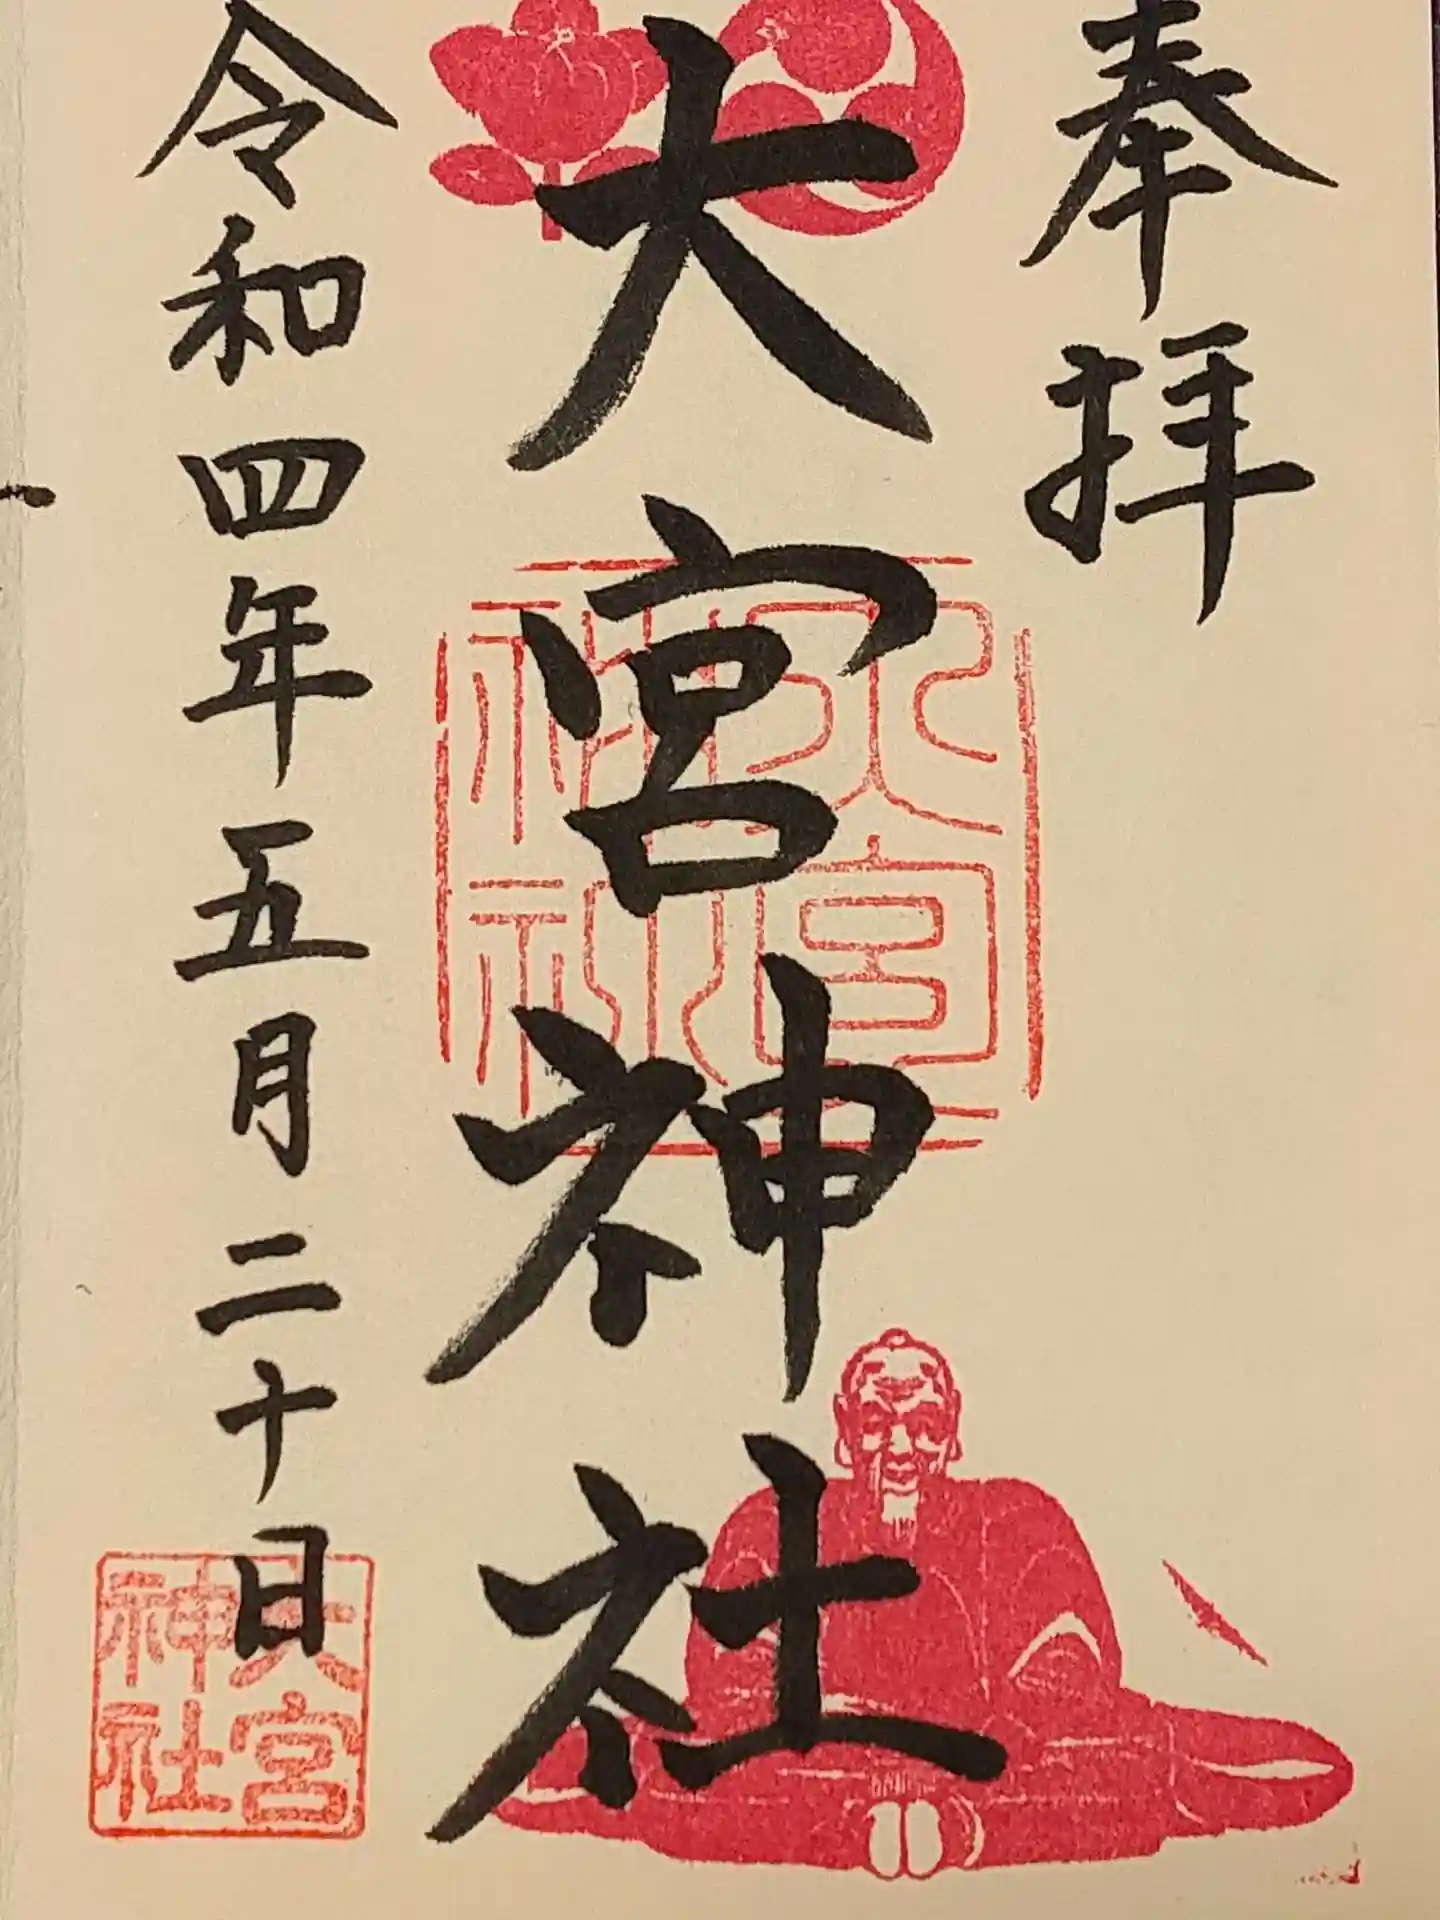 奉拝
大宮神社
令和四年五月二十日
大宮神社
大宮神社